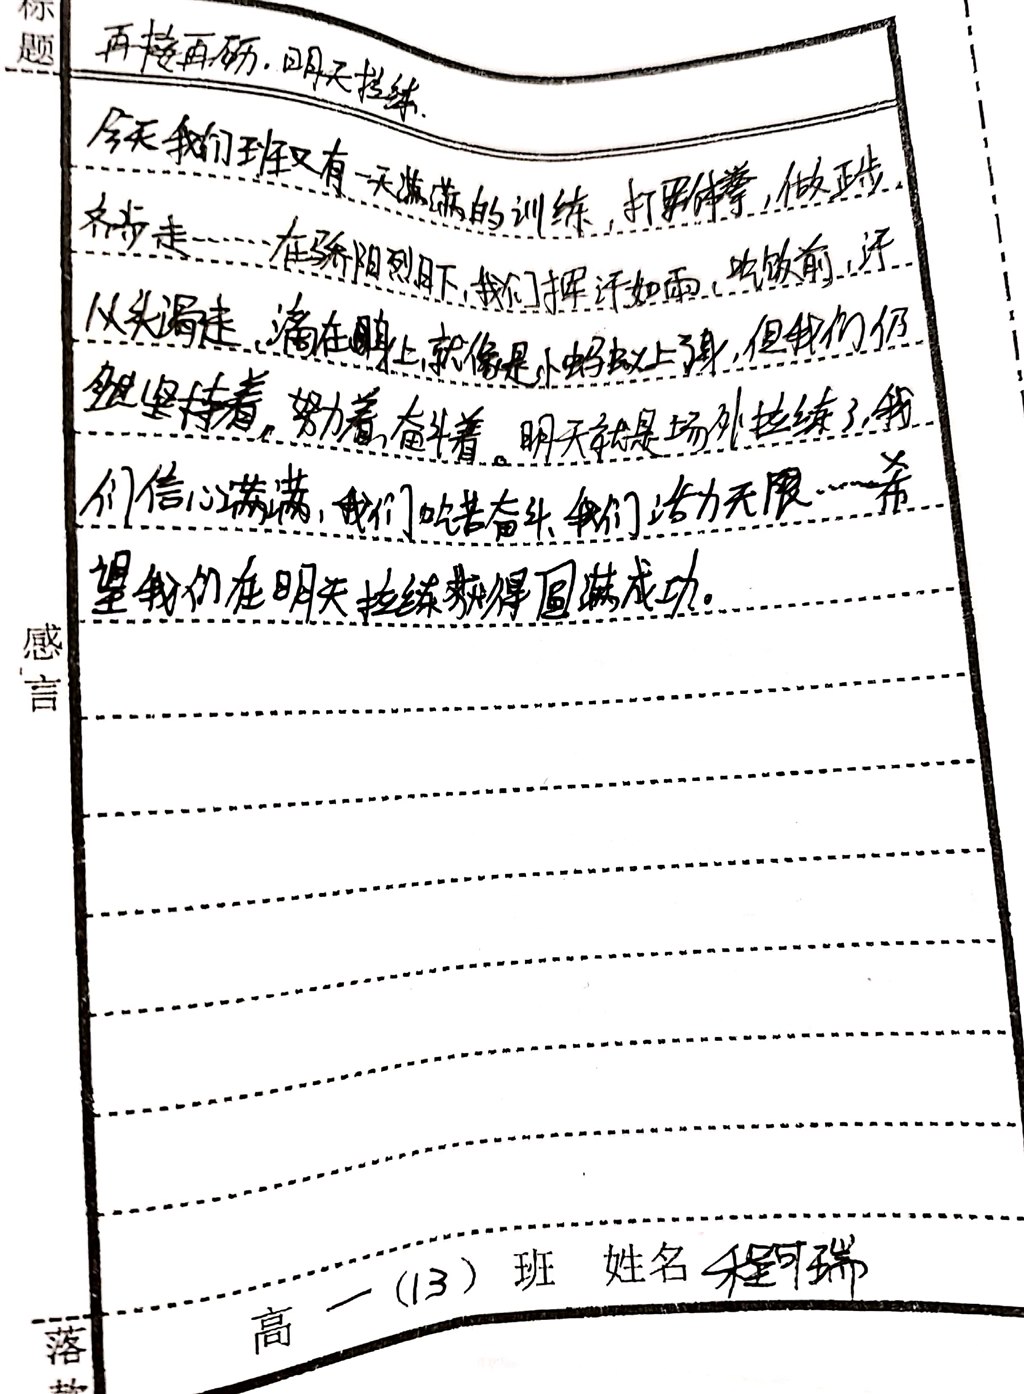 标题
再接再砺.明天拉练.
今天我们班又有一天满满的训练,打军体拳,做正步.
齐步走……在骄阳烈日下,我们挥汗如雨、吃饭前,汗
从头渴走、滴在身上,就像是小蚂蚁上了身,但我们仍
然坚持着。努力着,奋斗着。明天就是场外拉练了,我
们信心满满,我们吃苦奋斗、我们活力无限……希
望我们在明天拉练获得圆满成功。
感言
高一(13)班 姓名 程可瑞
落款